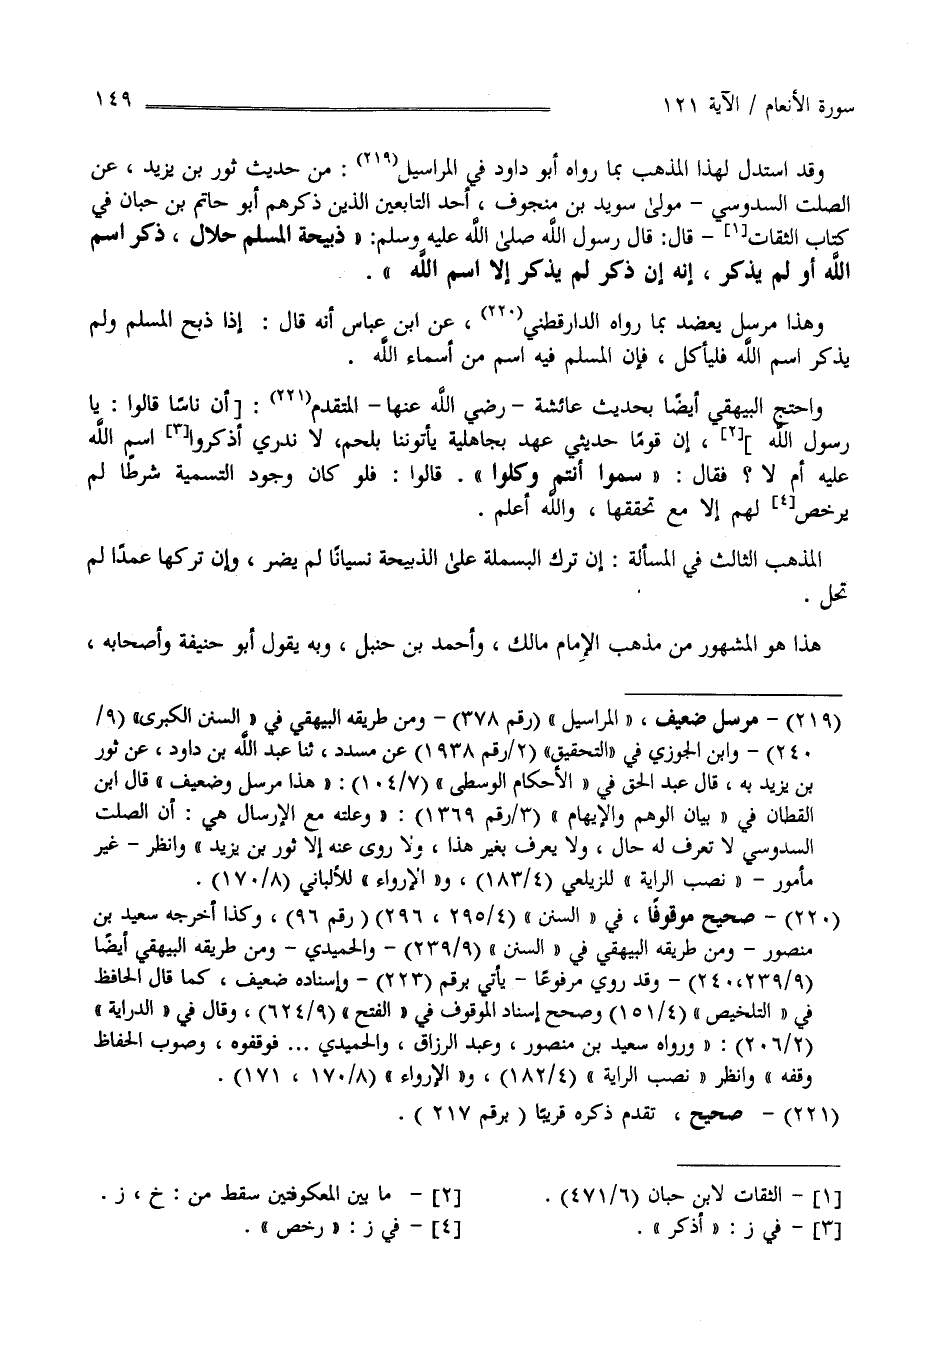 سورة الأنعام / الآية ١٢١ ١٤٩
وقد استدل لهذا المذهب بما رواه أبو داود في المراسيل(٢١٩) : من حديث ثور بن يزيد ، عن
الصلت السدوسي – مولىٰ سويد بن منجوف ، أحد التابعين الذين ذكرهم أبو حاتم بن حبان في
كتاب الثقات[١] – قال: قال رسول اللَّه صلىٰ اللَّه عليه وسلم: « ذبيحة المسلم حلال ، ذكر اسم
اللَّه أو لم يذكر ، إنه إن ذكر لم يذكر إلا اسم اللَّه » .
وهذا مرسل يعضد بما رواه الدارقطني(٢٢٠) ، عن ابن عباس أنه قال : إذا ذبح المسلم ولم
يذكر اسم اللَّه فليأكل ، فإن المسلم فيه اسم من أسماء اللَّه .
واحتج البيهقي أيضًا بحديث عائشة – رضي اللَّه عنها– المتقدم(٢٢١) : [أن ناسًا قالوا : يا
رسول اللَّه ][٢] ، إن قومًا حديثي عهد بجاهلية يأتوننا بلحم، لا ندري أذكروا[٣] اسم اللَّه
عليه أم لا ؟ فقال : « سموا أنتم وكلوا » . قالوا : فلو كان وجود التسمية شرطًا لم
يرخص[٤] لهم إلا مع تحققها ، واللَّه أعلم .
المذهب الثالث في المسألة : إن ترك البسملة علىٰ الذبيحة نسيانًا لم يضر ، وإن تركها عمدًا لم
تحل .
هذا هو المشهور من مذهب الإمام مالك ، وأحمد بن حنبل ، وبه يقول أبو حنيفة وأصحابه ،
(٢١٩) – مرسل ضعيف ، « المراسيل » (رقم ٣٧٨) – ومن طريقه البيهقي في « السنن الكبرى» (٩/
٢٤٠) – وابن الجوزي في «التحقيق» (٢/رقم ١٩٣٨) عن مسدد ، ثنا عبد اللَّه بن داود ، عن ثور
بن يزيد به ، قال عبد الحق في « الأحكام الوسطى » (١٠٤/٧) : « هذا مرسل وضعيف » قال ابن
القطان في « بيان الوهم والإيهام » (٣/رقم ١٣٦٩) : « وعلته مع الإرسال هي : أن الصلت
السدوسي لا تعرف له حال ، ولا يعرف بغير هذا ، ولا روى عنه إلا ثور بن يزيد » وانظر – غير
مأمور – « نصب الراية » للزيلعي (١٨٣/٤) ، و« الإرواء » للألباني (١٧٠/٨) .
(٢٢٠) – صحيح موقوفًا ، في « السنن » (٢٩٥/٤ ، ٢٩٦) ( رقم ٩٦) ، وكذا أخرجه سعيد بن
منصور – ومن طريقه البيهقي في « السنن » (٢٣٩/٩) – والحميدي – ومن طريقه البيهقي أيضًا
(٢٤٠،٢٣٩/٩) – وقد روي مرفوعًا – يأتي برقم (٢٢٣) – وإسناده ضعيف ، كما قال الحافظ
في « التلخيص » (١٥١/٤) وصحح إسناد الموقوف في « الفتح » (٦٢٤/٩) ، وقال في « الدراية »
(٢٠٦/٢) : « ورواه سعيد بن منصور ، وعبد الرزاق ، والحميدي ... فوقفوه ، وصوب الحفاظ
وقفه » وانظر « نصب الراية » (١٨٢/٤) ، و« الإرواء » (١٧٠/٨ ، ١٧١) .
(٢٢١) – صحيح ، تقدم ذكره قريبًا ( برقم ٢١٧ ) .
[١] – الثقات لابن حبان (٤٧١/٦) . [٢] – ما بين المعكوفتين سقط من : خ ، ز .
[٣] – في ز : « أذكر » . [٤] – في ز : « رخص » .